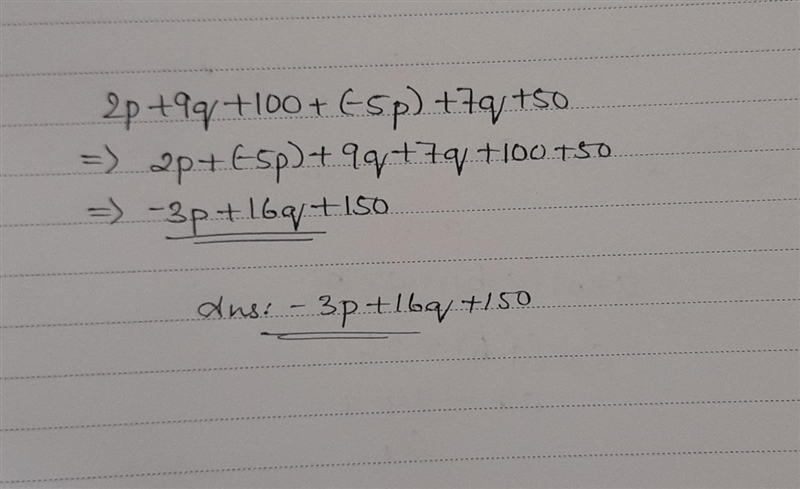 2p+9q+100+(-5p)+7q+50
=> 2p+(-5p)+9q+7q+100+50
=> -3p+16q+150
Ans: -3p+16q+150